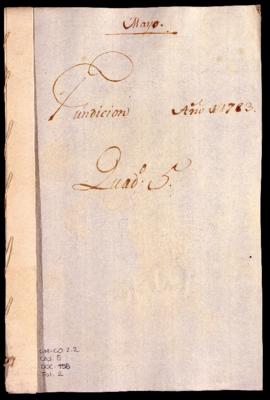 Mayo.
Fundicion Añ.º d 1783.
Quad.º 5.
CM-CO 2.2
CAJ. 5
DOC. 158
Fol. 2